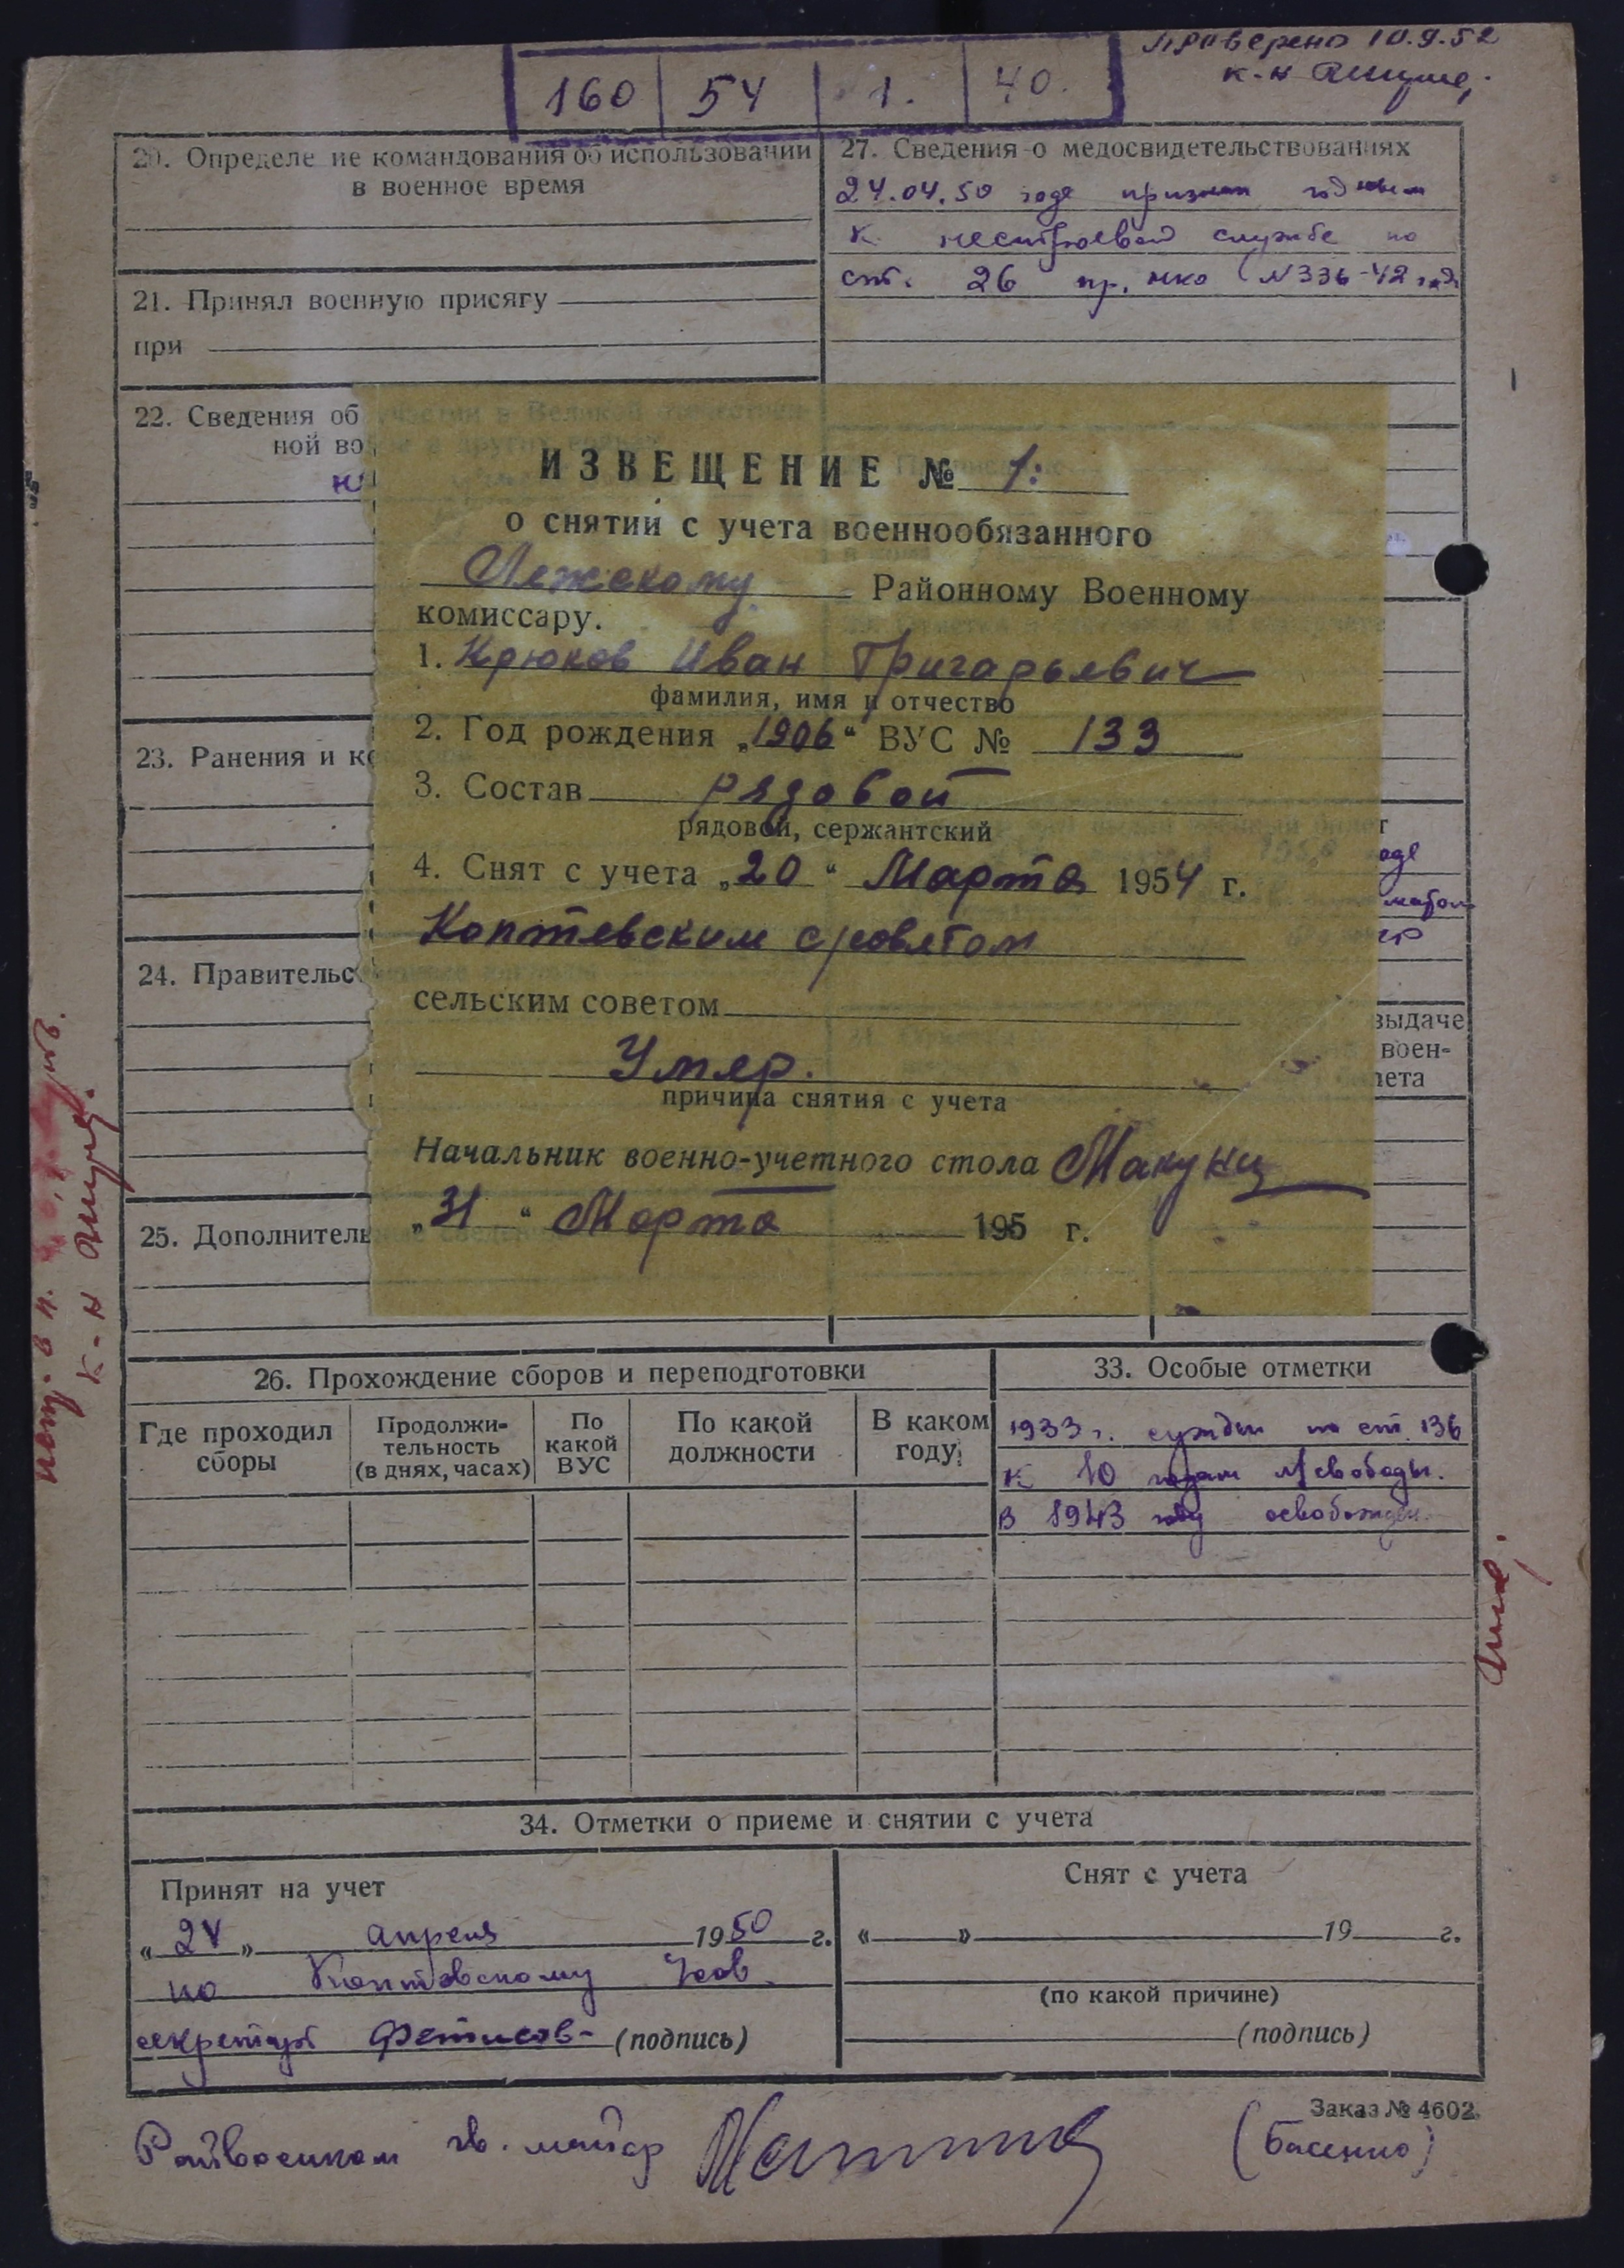 Проверено 10.9.52
к-н
160 54 1. 40.
20. Определе ие командования об использовании
в военное время
21. Принял военную присягу
при
27. Сведения о медосвидетельствованиях
24.04.50 годе признан годным
к нестроевой службе по
ст. 26 пр. нко N336-42 год
22. Сведения об участии в Великой отечествен-
ной во
23. Ранения и к
24. Правительс
25. Дополнитель
ИЗВЕЩЕНИЕ № 1.
о снятии с учета военнообязанного
Лежскому Районному Военному
комиссару.
1. Крюков Иван Григарьевич
фамилия, имя и отчество
2. Год рождения „1906“ ВУС № 133
3. Состав рядовой
рядовой, сержантский
4. Снят с учета „20“ Марта 1954 г.
Коптевским с/советом
сельским советом
Умер.
причина снятия с учета
Начальник военно-учетного стола
„31“ Марта 195 г.
оде
выдаче
воен-
лета
26. Прохождение сборов и переподготовки
Где проходил
сборы
Продолжи-
тельность
(в днях, часах)
По
какой
ВУС
По какой
должности
В каком
году
33. Особые отметки
1933 г. сужден по ст. 136
к 10 годам л/свободы.
В 1943 году освобожден.
34. Отметки о приеме и снятии с учета
Принят на учет
« 24 » апреля 1950 г.
по Коптевскому
секретарь Фетисов- (подпись)
Снят с учета
« » 19 г.
(по какой причине)
(подпись)
Заказ № 4602.
Райвоенком гв. майор (Басенко)